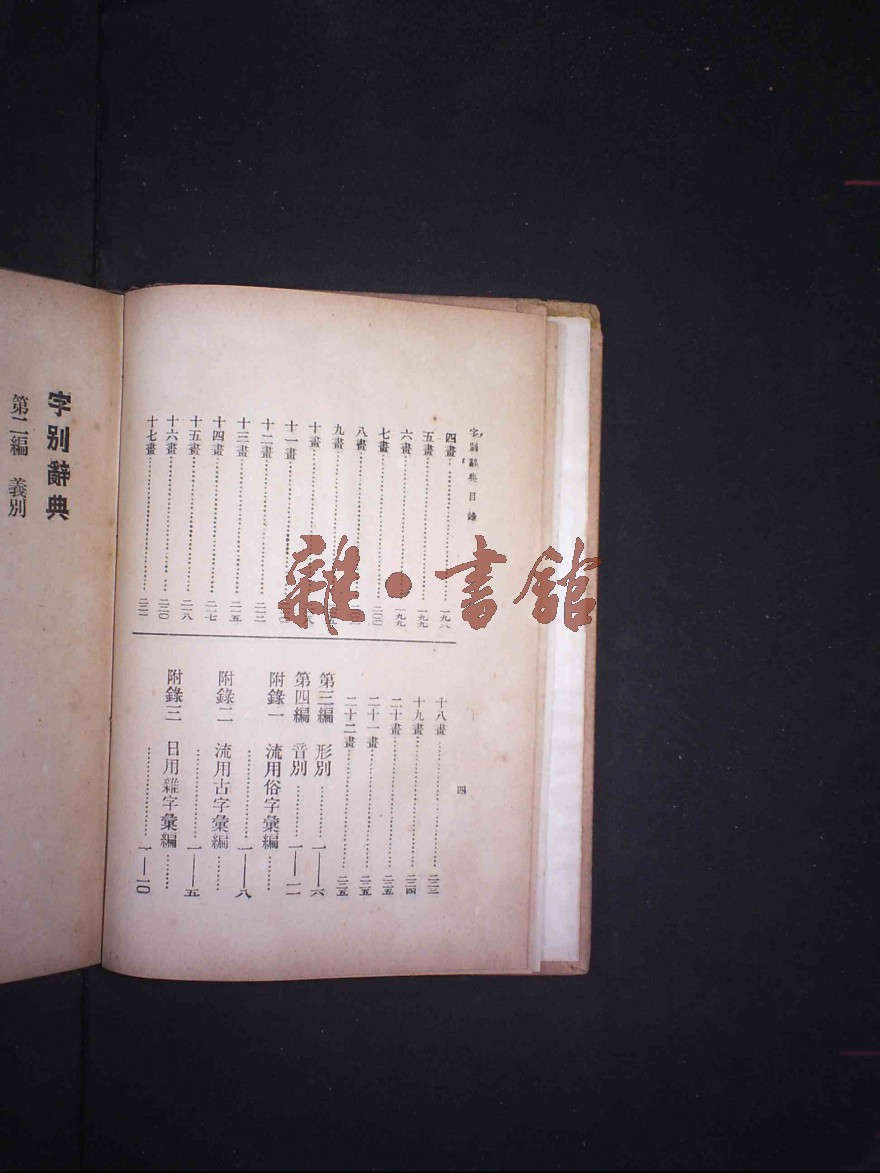 字別辭典目錄
四畫………一九八
五畫………一九九
六畫………一九九
七畫………二〇〇
八畫
九畫
十畫
十一畫
十二畫………二一三
十三畫………二一五
十四畫………二一七
十五畫………二一八
十六畫………二二〇
十七畫………二二二
十八畫………二二三
十九畫………二二四
二十畫………二二五
二十一畫………二二五
二十二畫………二二五
第三編 形別………一—六
第四編 音別………一—一二
附錄一 流用俗字彙編………
………一—八
附錄二 流用古字彙編………
………一—五
附錄三 日用雜字彙編………
………一—一〇
四
字別辭典
第二編 義別
雜·書館